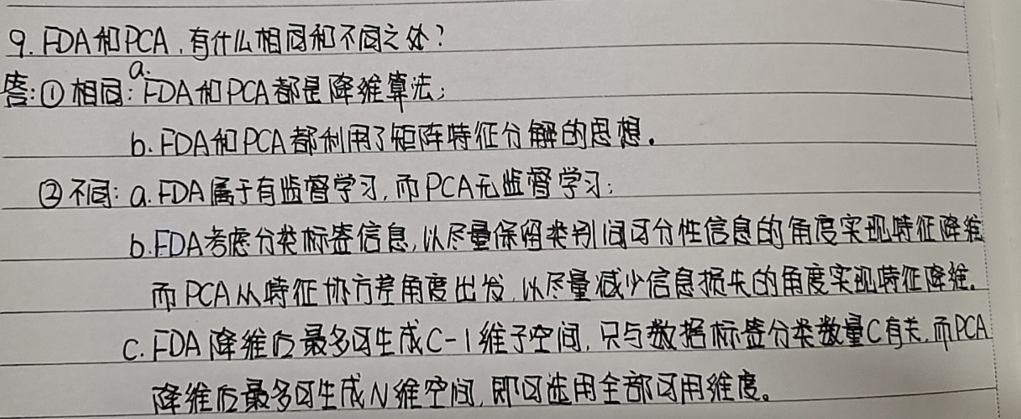 9. FDA和PCA，有什么相同和不同之处？
答：①相同：a. FDA和PCA都是降维算法；
b. FDA和PCA都利用了矩阵特征分解的思想。
②不同：a. FDA属于有监督学习，而PCA无监督学习；
b. FDA考虑分类标签信息，以尽量保留类别间可分性信息的角度实现特征降维
而PCA从特征协方差角度出发，以尽量减少信息损失的角度实现特征降维。
c. FDA降维后最多可生成C-1维子空间，只与数据标签分类数量C有关，而PCA
降维后最多可生成N维空间，即可选用全部可用维度。